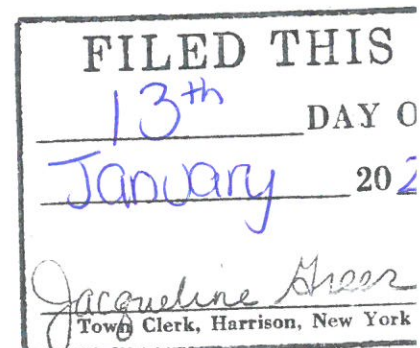 FILED THIS
13th
DAY O
January 202
Jacqueline Greer
Town Clerk, Harrison, New York